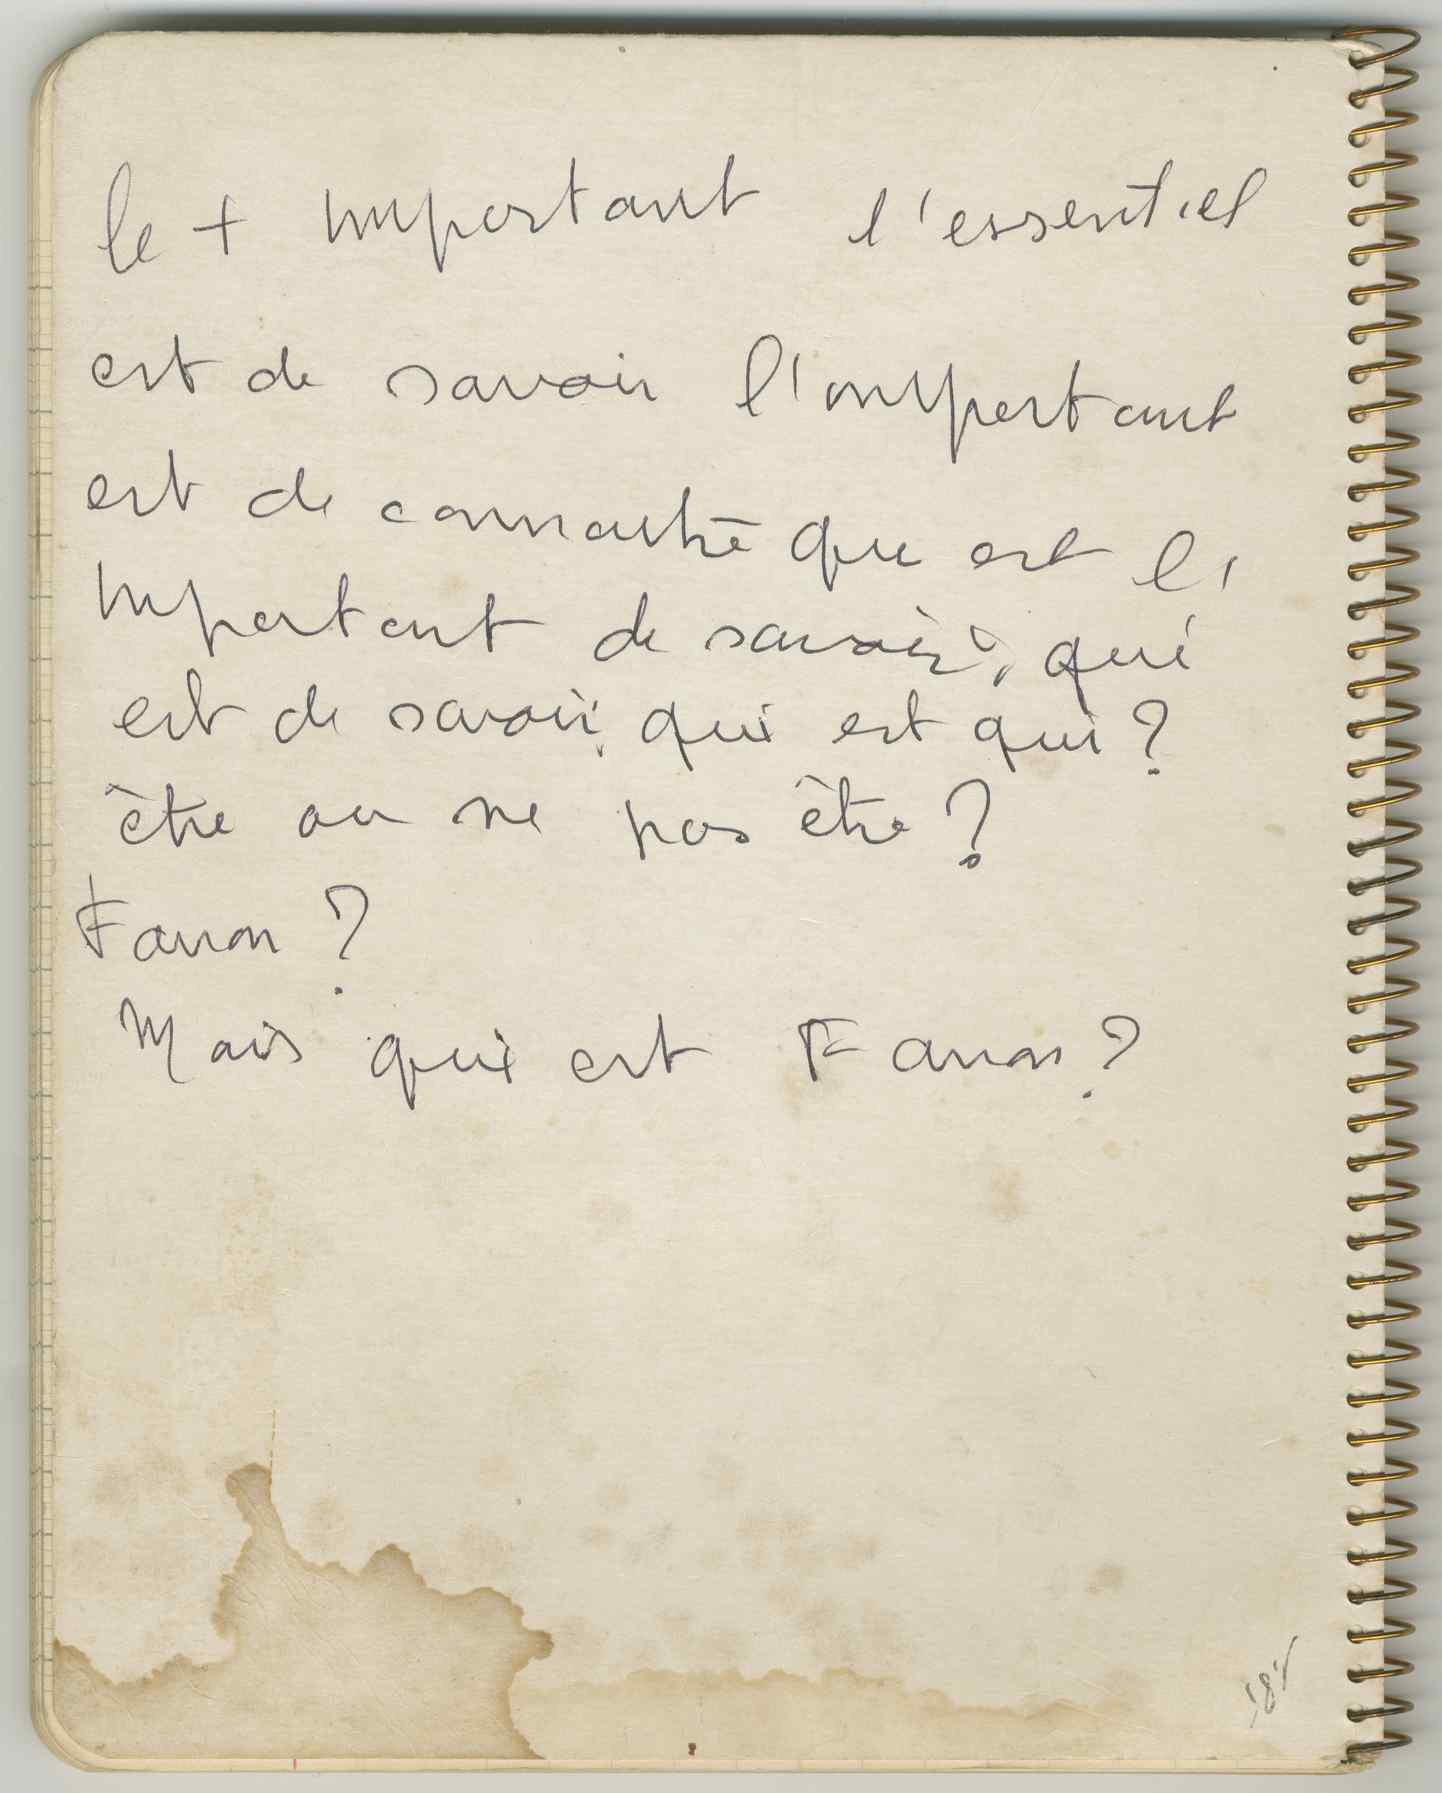 le + important l'essentiel
est de savoir l'important
est de connaitre que est l'
important de savoir, qui
est de savoir, qui est qui ?
être ou ne pas être ?
Fanon ?
Mais qui est Fanon ?